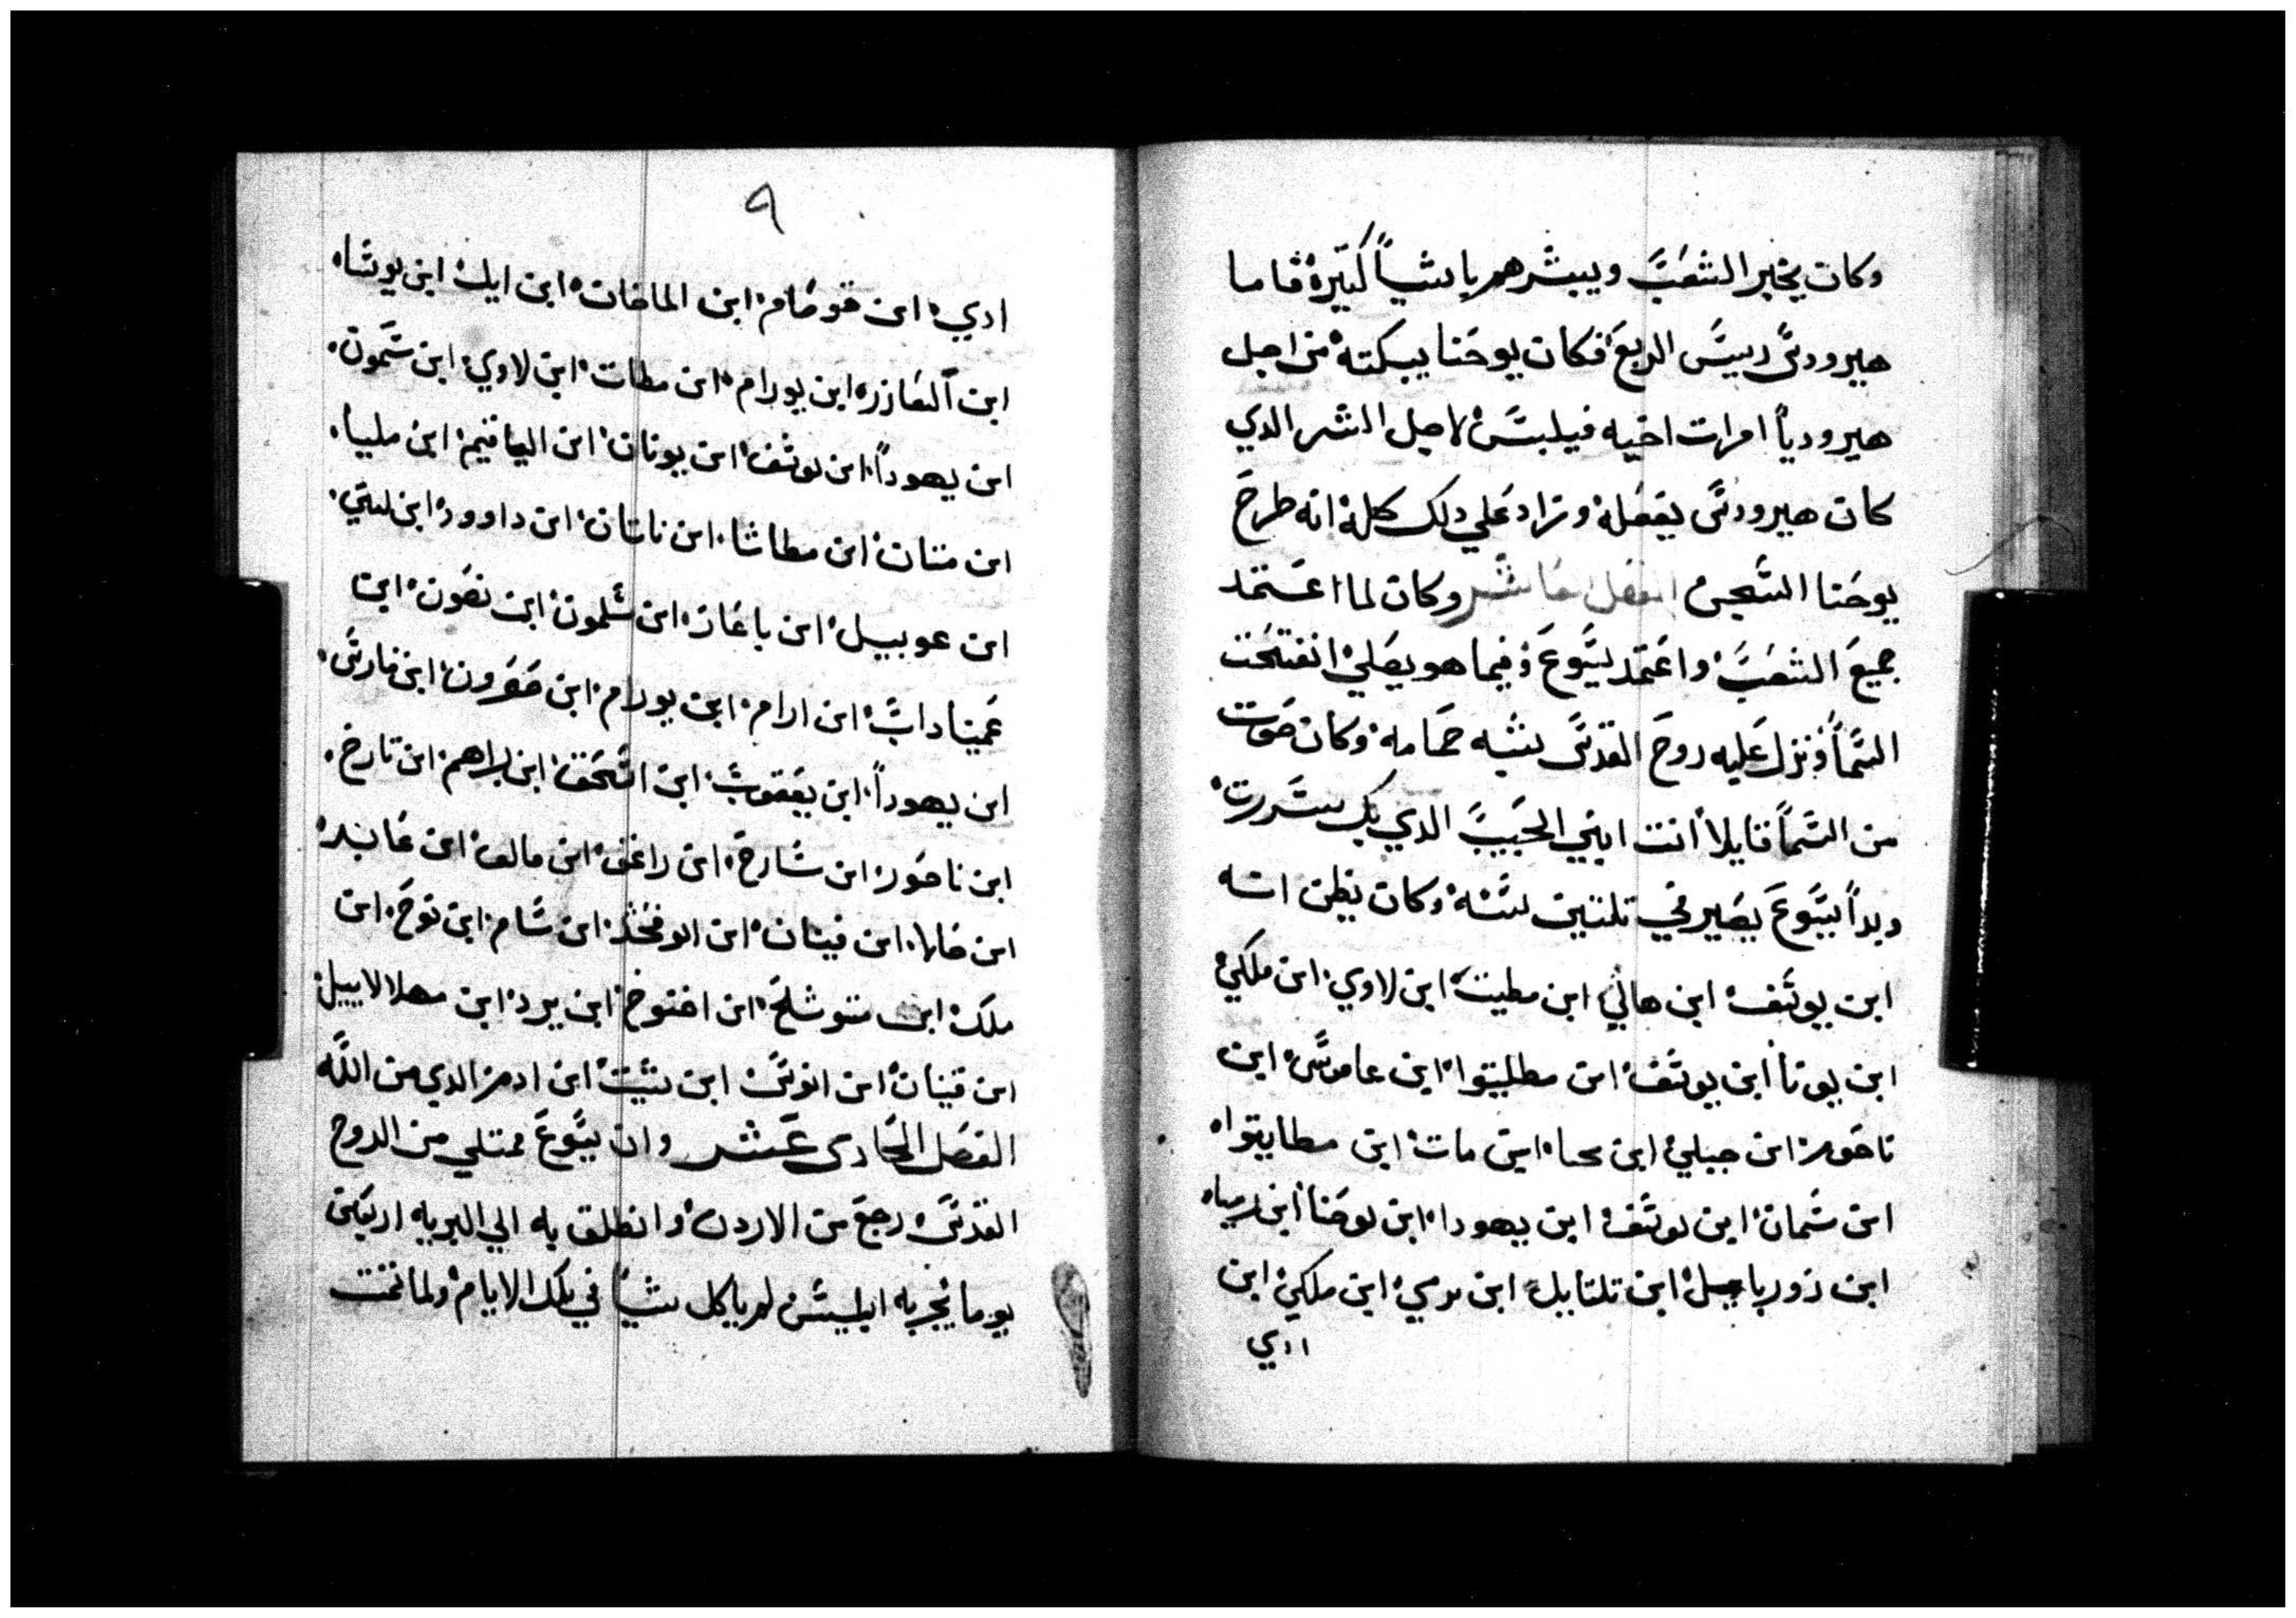 وكان يخبر الشعب ويبشرهم باشياً كتيرة فاما
هيرودس رييس الربع فكان يوحنا يبكته من اجل
هيرودياً امرات اخيه فيلبس لاجل الشر الدي
كان هيرودس يفعله وزاد علي دلك كله انه طرح
يوحنا السجن الفصل العاشر وكان لما اعتمد
جميع الشعب واعتمد يسوع وفيما هو يصلي انفتحت
السماً ونزل عليه روح القدس بشبه حمامه وكان صوت
من السماً قايلاً انت ابني الحبيب الدي بك سررت
وبداً يسوع يصير في تلتين سنه وكان يظن انه
ابن يوسف ابن هالي ابن مطيت ابن لاوي ابن ملكي
ابن يونا ابن يوسف ابن مطليتوا ابن عاموس ابن
ناحوم ابن جبلي ابن محا ابن مات ابن مطايتوا
ابن شمان ابن يوسف ابن يهودا ابن يوحنا ابن رميا
ابن زوربابيل ابن تلتاييل ابن نرمي ابن ملكي ابن
ادي
٩
ادي ابن قوصام ابن المافان ابن ايك ابن يوشا
ابن العازر ابن يورام ابن مطات ابن لاوي ابن شمون
ابن يهوداً ابن يوسف ابن يونان ابن الياقيم ابن مليا
ابن متان ابن مطاشا ابن ناتان ابن داوود ابن يسي
ابن عوبييل ابن باعاز ابن سلمون ابن نصون ابن
عميناداب ابن ارام ابن يورام ابن حصرون ابن فارس
ابن يهوداً ابن يعقوب ابن اسحق ابن ابراهم ابن تارخ
ابن ناحور ابن سارح ابن راغو ابن فالق ابن عابر
ابن صالا ابن قينان ابن ارفخشد ابن سام ابن نوح ابن
ملك ابن متوشلح ابن اخنوخ ابن يرد ابن مهلالاييل
ابن قينان ابن انوس ابن شيت ابن ادم الدي من الله
الفصل الحادى عشر وان يسوع ممتلي من الروح
القدس رجع من الاردن وانطلق به الي البريه اربعين
يوما يجربه ابليس لم ياكل شياً في تلك الايام ولما تمت